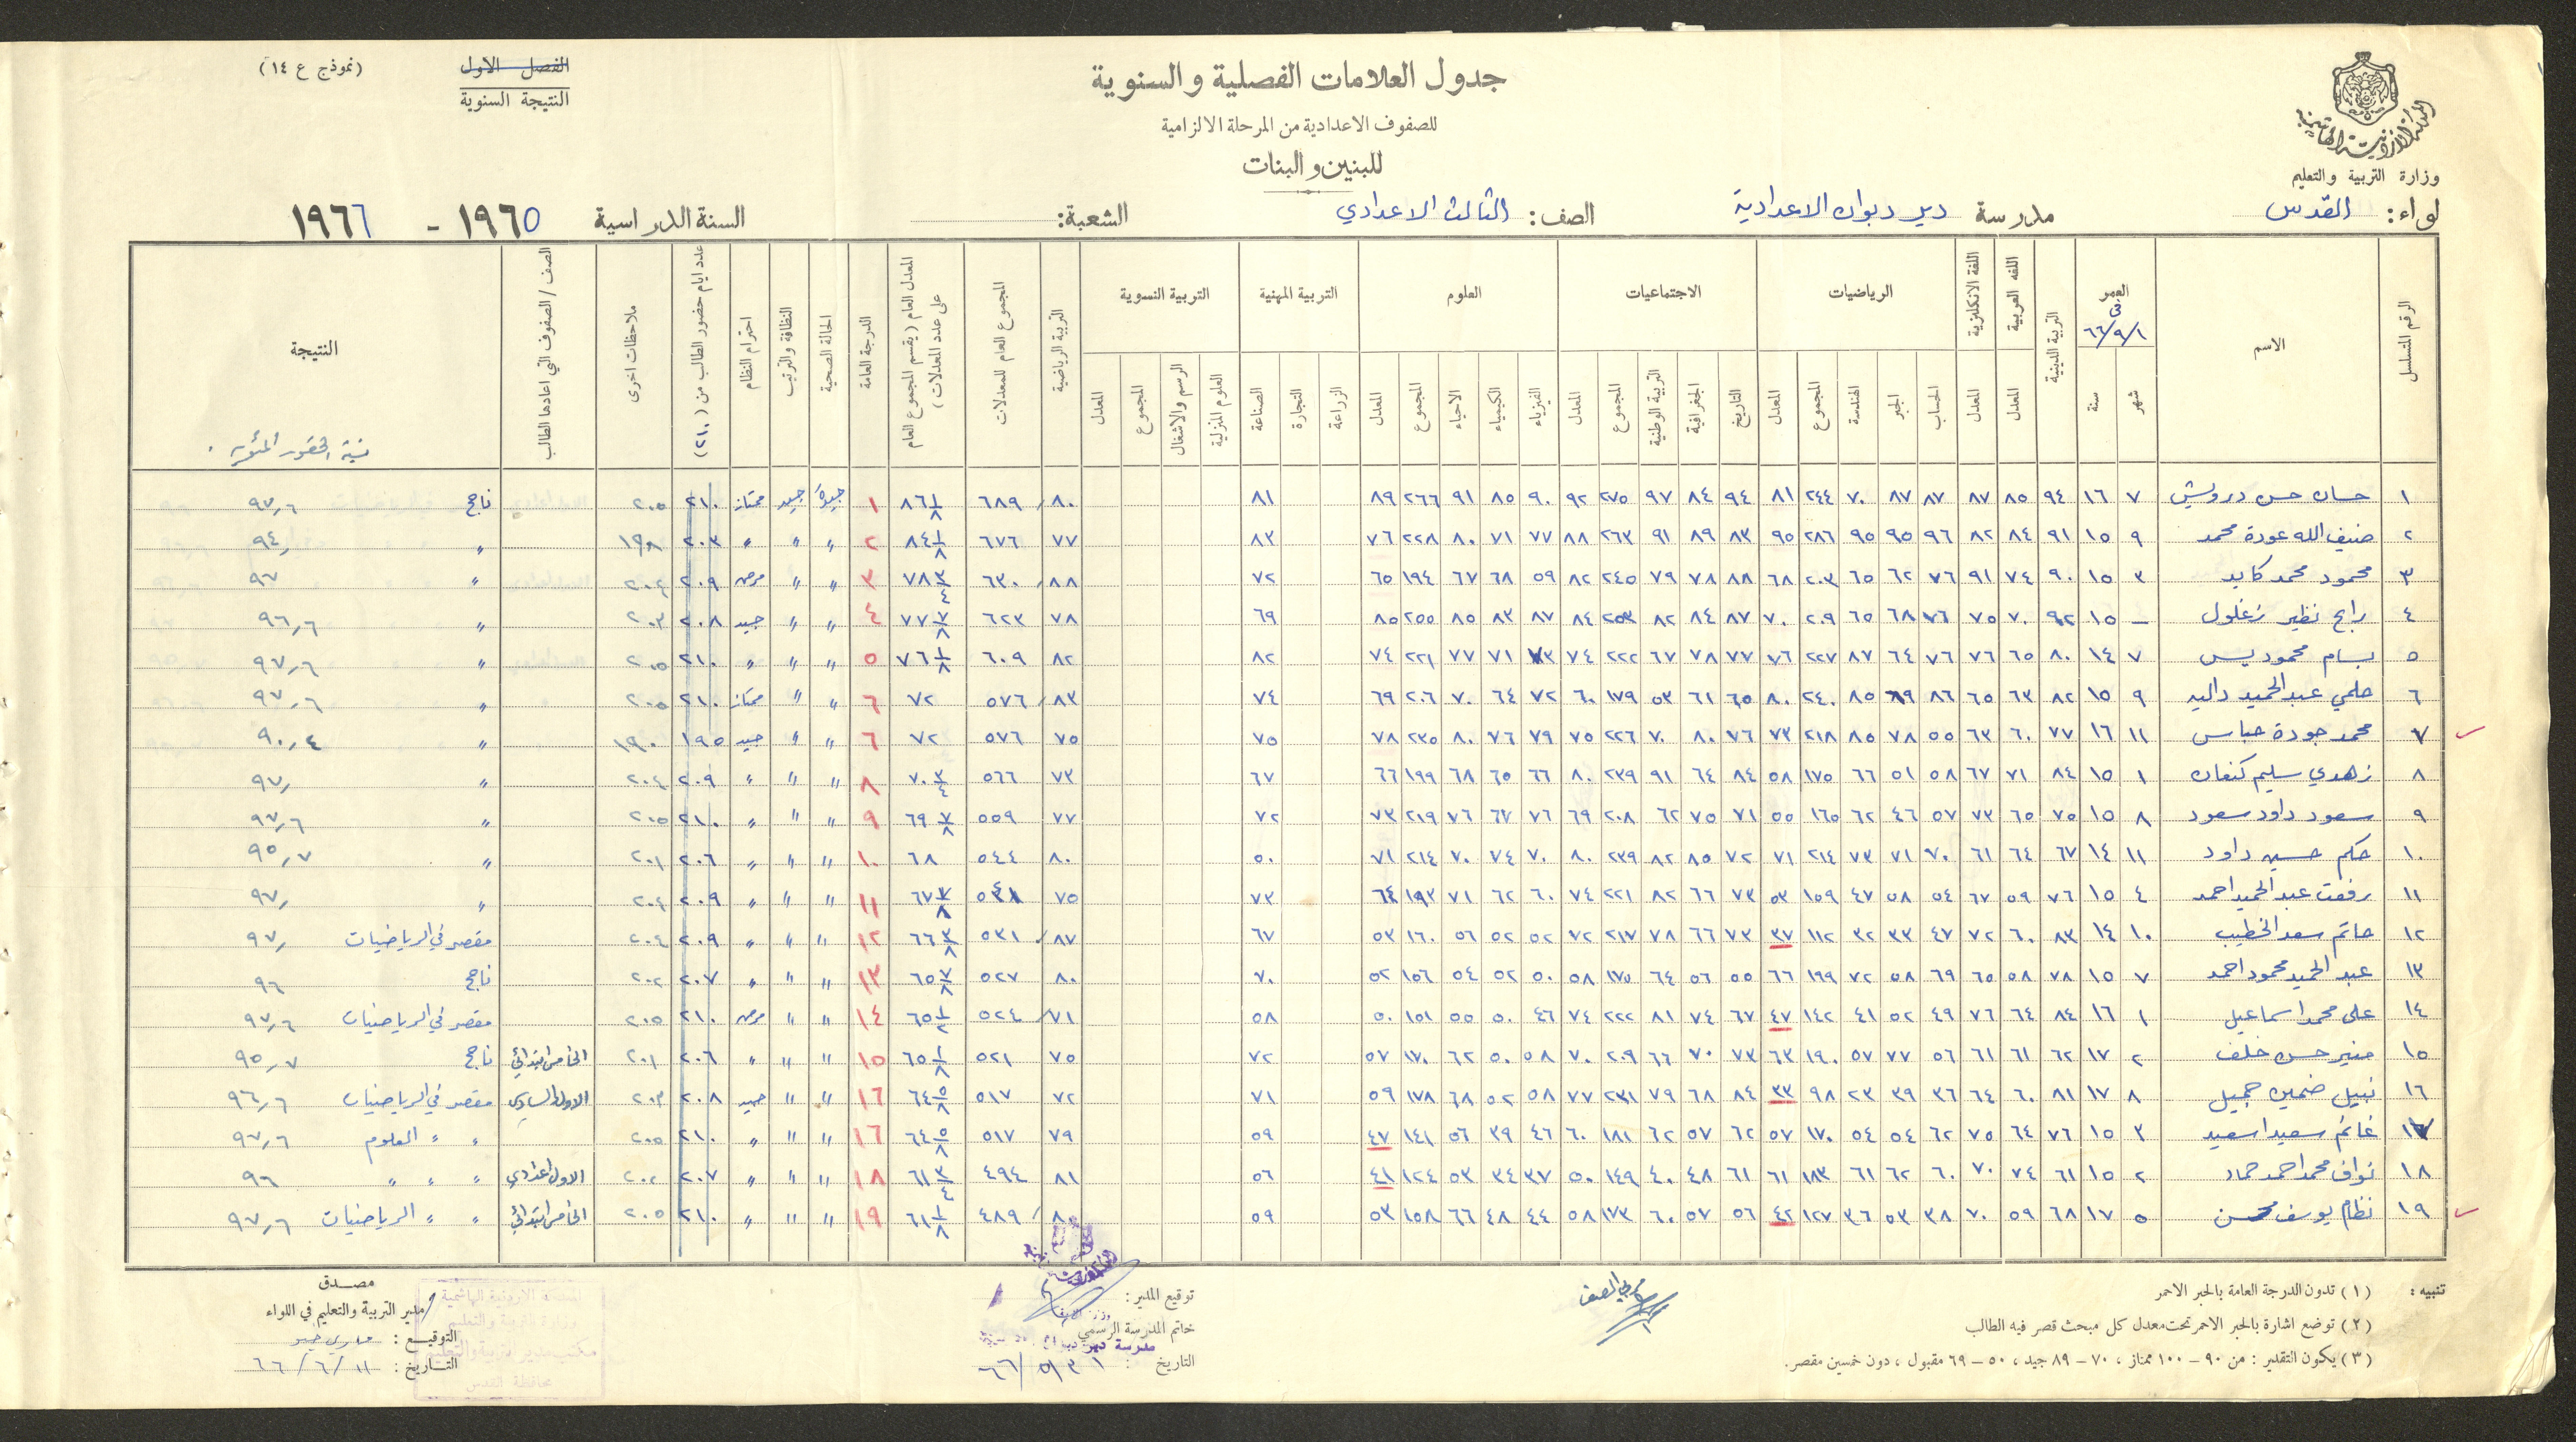 (نموذج ع ١٤)
الفصل الاول
النتيجة السنوية
جدول العلامات الفصلية والسنوية
للصفوف الاعدادية من المرحلة الالزامية
للبنين والبنات
المملكة الاردنية الهاشمية
وزارة التربية والتعليم
لواء: القدس مدرسة دير دبوان الاعدادية الصف: الثالث الاعدادي الشعبة: السنة الدراسية ١٩٦٥ - ١٩٦٦
الرقم المتسلسل الاسم العمر في ٦٦/٩/١ شهر سنة التربية الدينية اللغة العربية المعدل اللغة الانكليزية المعدل الرياضيات الحساب الجبر الهندسة المجموع المعدل الاجتماعيات التاريخ الجغرافية التربية الوطنية المجموع المعدل العلوم الفيزياء الكيمياء الاحياء المجموع المعدل التربية المهنية الزراعة التجارة الصناعة التربية النسوية العلوم المنزلية الرسم والاشغال المجموع المعدل التربية الرياضية المجموع العام للمعدلات المعدل العام (يقسم المجموع العام على عدد المعدلات) الدرجة العامة الحالة الصحية النظافة والترتيب احترام النظام عدد ايام حضور الطالب من (٢١٠) ملاحظات اخرى الصف / الصفوف التي اعادها الطالب النتيجة نسبة الحضور المئوية
١ حسان حسن درويش ٧ ١٦ ٩٤ ٨٥ ٨٧ ٨٧ ٨٧ ٧٠ ٢٤٤ ٨١ ٩٤ ٨٤ ٩٧ ٢٧٥ ٩٢ ٩٠ ٨٥ ٩١ ٢٦٦ ٨٩ ٨١ ٨٠ ٦٨٩ ٨٦ ١/٨ ١ جيدة جيد ممتاز ٢١٠ ٢٠٥ ناجح ٩٧,٦
٢ ضيف الله عودة محمد ٩ ١٥ ٩١ ٨٤ ٨٢ ٩٦ ٩٥ ٩٥ ٢٨٦ ٩٥ ٨٣ ٨٩ ٩١ ٢٦٣ ٨٨ ٧٧ ٧١ ٨٠ ٢٢٨ ٧٦ ٨٣ ٧٧ ٦٧٦ ٨٤ ١/٨ ٢ " " " ٢٠٣ ١٩٨ " ٩٤,
٣ محمود محمد كايد ٣ ١٥ ٩٠ ٧٤ ٩١ ٧٦ ٦٢ ٦٥ ٢٠٣ ٦٨ ٨٨ ٧٨ ٧٩ ٢٤٥ ٨٢ ٥٩ ٦٨ ٦٧ ١٩٤ ٦٥ ٧٢ ٨٨ ٦٣٠ ٧٨ ٣/٤ ٣ " " مرضي ٢٠٩ ٢٠٤ " ٩٧
٤ رابح نظير زغلول – ١٥ ٩٢ ٧٠ ٧٥ ٧٦ ٦٨ ٦٥ ٢٠٩ ٧٠ ٨٧ ٨٤ ٨٢ ٢٥٣ ٨٤ ٨٧ ٨٣ ٨٥ ٢٥٥ ٨٥ ٦٩ ٧٨ ٦٢٣ ٧٧ ٣/٨ ٤ " " جيد ٢٠٨ ٢٠٣ " ٩٦,٦
٥ بسام محمود يس ٧ ١٤ ٨٠ ٦٥ ٧٦ ٧٦ ٦٤ ٨٧ ٢٢٧ ٧٦ ٧٧ ٧٨ ٦٧ ٢٢٢ ٧٤ ٧٣ ٧١ ٧٧ ٢٢١ ٧٤ ٨٢ ٨٢ ٦٠٩ ٧٦ ١/٨ ٥ " " " ٢١٠ ٢٠٥ " ٩٧,٦
٦ حلمي عبد الحميد داليه ٩ ١٥ ٨٢ ٦٣ ٦٥ ٨٦ ٦٩ ٨٥ ٢٤٠ ٨٠ ٦٥ ٦١ ٥٣ ١٧٩ ٦٠ ٧٢ ٦٤ ٧٠ ٢٠٦ ٦٩ ٧٤ ٨٣ ٥٧٦ ٧٢ ٦ " " ممتاز ٢١٠ ٢٠٥ " ٩٧,٦
٧ محمد جودة عباس ١١ ١٦ ٧٧ ٦٠ ٦٣ ٥٥ ٧٨ ٨٥ ٢١٨ ٧٣ ٧٦ ٨٠ ٧٠ ٢٢٦ ٧٥ ٧٩ ٧٦ ٨٠ ٢٣٥ ٧٨ ٧٥ ٧٥ ٥٧٦ ٧٢ ٦ " " جيد ١٩٥ ١٩٠ " ٩٠,٤
٨ زهدي سليم كنعان ١ ١٥ ٨٤ ٧١ ٦٧ ٥٨ ٥١ ٦٦ ١٧٥ ٥٨ ٨٤ ٦٤ ٩١ ٢٣٩ ٨٠ ٦٦ ٦٥ ٦٨ ١٩٩ ٦٦ ٦٧ ٧٣ ٥٦٦ ٧٠ ٣/٤ ٨ " " " ٢٠٩ ٢٠٤ " ٩٧,
٩ سعود داود سعود ٨ ١٥ ٧٥ ٦٥ ٧٣ ٥٧ ٤٦ ٦٢ ١٦٥ ٥٥ ٧١ ٧٥ ٦٢ ٢٠٨ ٦٩ ٧٦ ٦٧ ٧٦ ٢١٩ ٧٣ ٧٢ ٧٧ ٥٥٩ ٦٩ ٧/٨ ٩ " " " ٢١٠ ٢٠٥ " ٩٧,٦
١٠ حكم حسين داود ١١ ١٤ ٦٧ ٦٤ ٦١ ٧٠ ٧١ ٧٣ ٢١٤ ٧١ ٧٢ ٨٥ ٨٢ ٢٣٩ ٨٠ ٧٠ ٧٤ ٧٠ ٢١٤ ٧١ ٥٠ ٨٠ ٥٤٤ ٦٨ ١٠ " " " ٢٠٦ ٢٠١ " ٩٥,٧
١١ رفعت عبد الحميد احمد ٤ ١٥ ٧٦ ٥٩ ٦٧ ٥٤ ٥٨ ٤٧ ١٥٩ ٥٣ ٧٣ ٦٦ ٨٢ ٢٢١ ٧٤ ٦٠ ٦٢ ٧١ ١٩٣ ٦٤ ٧٣ ٧٥ ٥٤١ ٦٧ ٧/٨ ١١ " " " ٢٠٩ ٢٠٤ " ٩٧,
١٢ حاتم سعد الخطيب ١٠ ١٤ ٨٣ ٦٠ ٧٢ ٤٧ ٣٣ ٣٢ ١١٢ ٣٧ ٧٣ ٦٦ ٧٨ ٢١٧ ٧٢ ٥٢ ٥٢ ٥٦ ١٦٠ ٥٣ ٦٧ ٨٧ ٥٣١ ٦٦ ٣/٨ ١٢ " " " ٢٠٩ ٢٠٤ مقصر في الرياضيات ٩٧,
١٣ عبد الحميد محمود احمد ٧ ١٥ ٧٨ ٥٨ ٦٥ ٦٩ ٥٨ ٧٢ ١٩٩ ٦٦ ٥٥ ٥٦ ٦٤ ١٧٥ ٥٨ ٥٠ ٥٢ ٥٤ ١٥٦ ٥٢ ٧٠ ٨٠ ٥٢٧ ٦٥ ٧/٨ ١٣ " " " ٢٠٧ ٢٠٢ ناجح ٩٦
١٤ علي محمد اسماعيل ١ ١٦ ٨٤ ٦٤ ٧٦ ٤٩ ٥٢ ٤١ ١٤٢ ٤٧ ٦٧ ٧٤ ٨١ ٢٢٢ ٧٤ ٤٦ ٥٠ ٥٥ ١٥١ ٥٠ ٥٨ ٧١ ٥٢٤ ٦٥ ١/٢ ١٤ " " مرضي ٢١٠ ٢٠٥ مقصر في الرياضيات ٩٧,٦
١٥ منير حسن خلف ٢ ١٧ ٦٢ ٦١ ٦١ ٥٦ ٧٧ ٥٧ ١٩٠ ٦٣ ٧٣ ٧٠ ٦٦ ٢٠٩ ٧٠ ٥٨ ٥٠ ٦٢ ١٧٠ ٥٧ ٧٢ ٧٥ ٥٢١ ٦٥ ١/٨ ١٥ " " " ٢٠٦ ٢٠١ الخامس ابتدائي ناجح ٩٥,٧
١٦ نبيل ضمين جميل ٨ ١٧ ٨١ ٦٠ ٦٤ ٣٦ ٣٩ ٢٣ ٩٨ ٣٣ ٨٤ ٦٨ ٧٩ ٢٣١ ٧٧ ٥٨ ٥٢ ٦٨ ١٧٨ ٥٩ ٧١ ٧٢ ٥١٧ ٦٤ ٥/٨ ١٦ " " جيد ٢٠٨ ٢٠٣ الاول مقصر في الرياضيات ٩٦,٦
١٧ غانم سعيد اسعيد ٣ ١٥ ٧٦ ٦٤ ٧٥ ٦٢ ٥٤ ٥٤ ١٧٠ ٥٧ ٦٢ ٥٧ ٦٢ ١٨١ ٦٠ ٤٦ ٣٩ ٥٦ ١٤١ ٤٧ ٥٩ ٧٩ ٥١٧ ٦٤ ٥/٨ ١٦ " " " ٢١٠ ٢٠٥ " " العلوم ٩٧,٦
١٨ نواف محمد احمد حماد ٢ ١٥ ٦١ ٧٤ ٧٠ ٦٠ ٦٢ ٦١ ١٨٣ ٦١ ٦١ ٤٨ ٤٠ ١٤٩ ٥٠ ٣٧ ٣٤ ٥٣ ١٢٤ ٤١ ٥٦ ٨١ ٤٩٤ ٦١ ٣/٤ ١٨ " " " ٢٠٧ ٢٠٢ الاول اعدادي " " " ٩٦
١٩ نظام يوسف محسن ٥ ١٧ ٦٨ ٥٩ ٧٠ ٣٨ ٥٣ ٣٦ ١٢٧ ٤٢ ٥٦ ٥٧ ٦٠ ١٧٣ ٥٨ ٤٤ ٤٨ ٦٦ ١٥٨ ٥٣ ٥٩ ٨٠ ٤٨٩ ٦١ ١/٨ ١٩ " " " ٢١٠ ٢٠٥ الخامس ابتدائي " " الرياضيات ٩٧,٦
تنبيه: (١) تدون الدرجة العامة بالحبر الاحمر
(٢) توضع اشارة بالحبر الاحمر تحت معدل كل مبحث قصر فيه الطالب
(٣) يكون التقدير: من ٩٠ – ١٠٠ ممتاز، ٧٠ – ٨٩ جيد، ٥٠ – ٦٩ مقبول، دون خمسين مقصر.
مربي الصف
توقيع المدير:
خاتم المدرسة الرسمي
مدرسة دير دبوان
التاريخ : ٦٦/٥/٣١
مصدق
مدير التربية والتعليم في اللواء
التوقيع:
التاريخ: ٦٦/٦/١١
المملكة الاردنية الهاشمية
وزارة التربية والتعليم
مكتب مدير التربية والتعليم
محافظة القدس